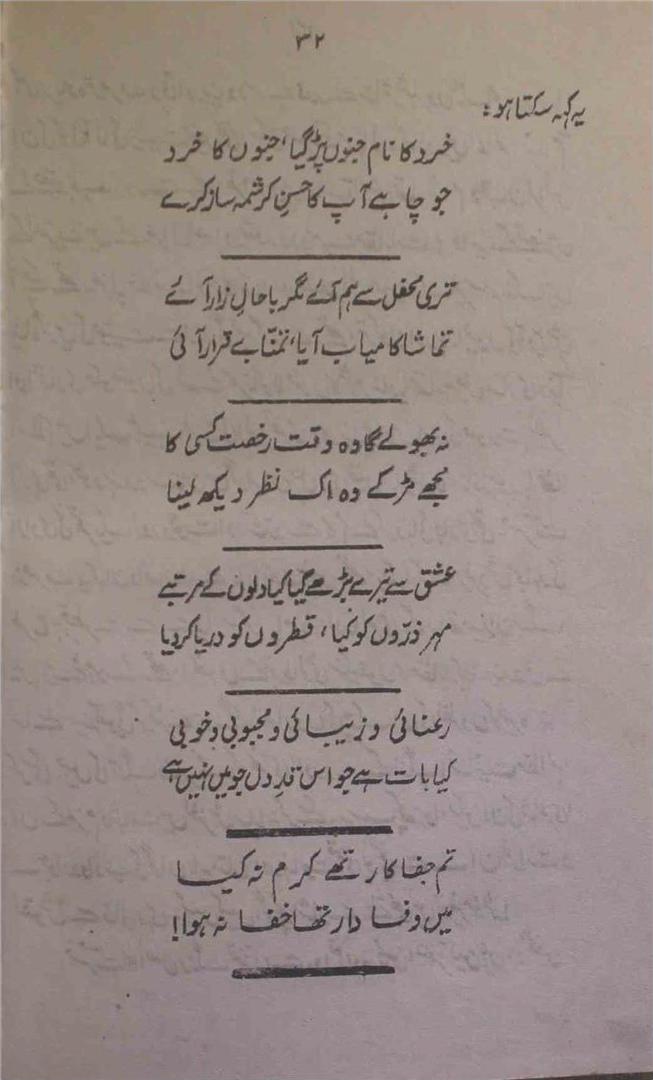 ۳۲
یہ کہہ سکتا ہو:
خرد کا نام جنوں پڑ گیا، جنوں کا خرد
جو چاہے آپ کا حسنِ کرشمہ ساز کرے
تری محفل سے ہم آئے مگر با حالِ زار آئے
تماشا کامیاب آیا، تمنّا بے قرار آئی
نہ بھولے گا وہ وقت رخصت کسی کا
مجھے مڑ کے وہ اک نظر دیکھ لینا
عشق سے تیرے بڑھے گیا کیا دلوں کے مرتبے
مہر ذرّوں کو کیا، قطروں کو دریا کر دیا
رعنائی و زیبائی و محبوبی و خوبی
کیا بات ہے جو اس قدِ دل جو میں نہیں ہے
تم جفا کار تھے کرم نہ کیا
میں وفادار تھا خفا نہ ہوا!